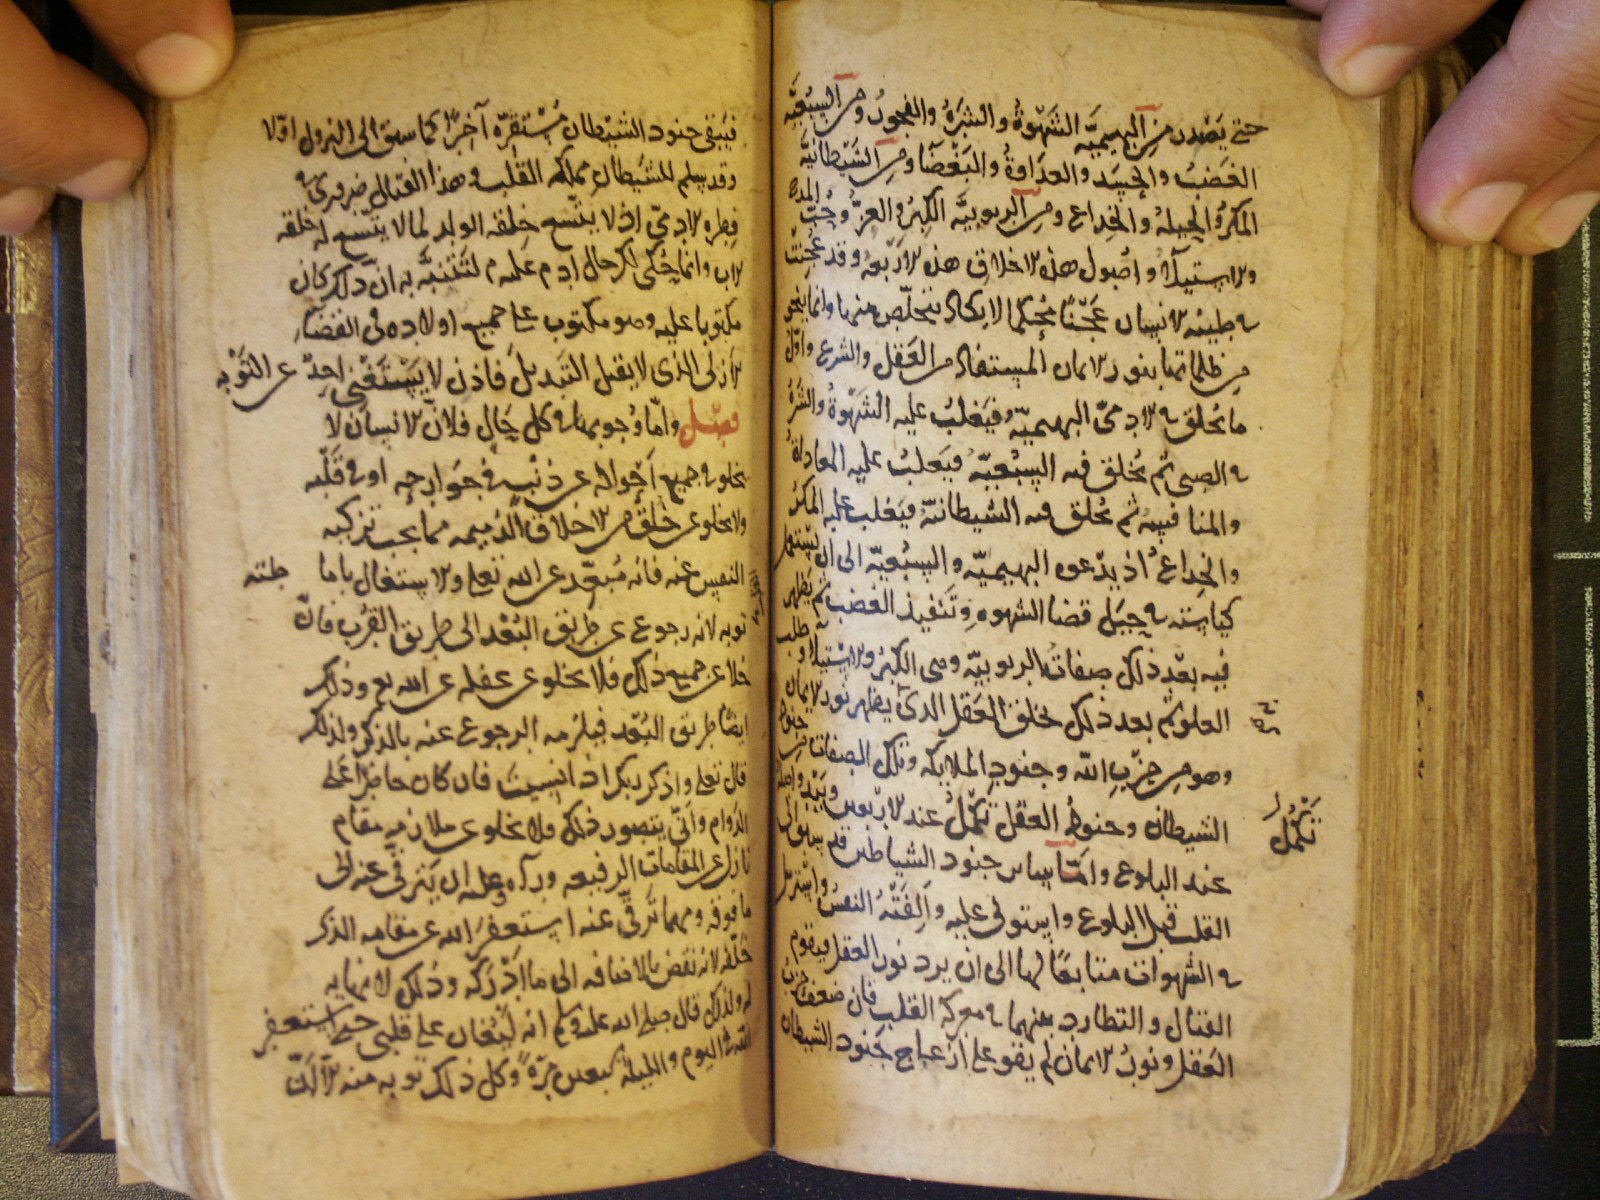 حتى يصدر من البهيميّة الشهوةُ والشرَهُ والفجورُ ومن السبُعيّة
الغضبُ والحسد والعداوةُ والبغضَا ومن الشيطانيّة
المكرُ والحيلهُ والخداع ومن الربوبيّة الكبرُ والعزّ وحُبّ المدح
والاستيلآ واصُول هذه الاخلاق هذه الاربعه وقد عُجنت
في طينه الانسان عَجْنًا مُحْكمًا لا يكاد يتخلّص منها وانما ينجو
من ظلماتها بنور الايمان المستفاد من العقل والشرع واوّل
ما يُخلق في الادميّ البهيميّه فيَغلبُ عليه الشهوةُ والشَرَهُ
في الصبى ثم يُخلق فيه السبُعيّه فيَغلبُ عليه المعاداةُ
والمنافسه ثم يُخلق فيه الشيطانيّة فيَغلب عليه المكرُ
والخداعُ اذ يدعوه البهيميّه والسبُعيّه الى ان يستعمل
كياسته في حِيَل قضا الشهوه وتنفيذ الغضب ثم يظهر
فيه بعْد ذلك صفاتُ الربوبيّه وهى الكبرُ والاستيلا وطلب
العلو ثم بعد ذلك يخلق العقل الذى يظهر نور الايمان
وهو من حزب الله وجنودِ الملايكه وتلك الصفات من جنود
الشيطان وجنودُ العقل تكمُلُ عند الاربعين ويَبْدو اصله
تكْمُل
عند البلوغ وامّا سايرُ جنود الشياطين فقد سبق الى
القلب قبل البلوغ واستولى عليه والِفَتْهُ النفسُ واسترسل
في الشهوات متابعًا لها الى ان يرد نور العقل فيقوم
القتال والتطارد بينهما في معركه القلب فان ضعف حزبُ
العقل ونورُ الايمان لم يقو على ازعاج جنود الشيطان
فيبقى جنود الشيطان مُسْتقِرّة آخرًا كما سبق الى النزول اوّلا
وقد يسلم للشيطان مملكه القلب وهذا القتال ضروري في
فطره الادميّ اذ لا يتّسع خلقه الولد لما لا يتّسع له خلقه
الاب وانما حُكى لكم حال ادم عليه م لتتنبّه به ان ذلك كان
مكتوبا عليه وهو مكتوب على جميع اولاده في القضَاءِ
الازلى الذى لا يقبل التبديل فاذن لا يستغني احد عن التوْبه
فصل وامّا وُجوبها في كل حال فلانّ الانسان لا
يخلو في جميع احْواله عن ذنْبٍ في جَوارحه او في قَلْبه
ولا يخلو عن خلُقٍ من الاخلاق الذميمه مما يجب تزكيه
النفس عنه فانه مُبعّد عن الله تعلى والاستغال باماطته
توبه لانه رجوع عن طريق البُعْد الى طريق القرب فان
خلا عن جميع ذلك فلا يخلو عن غفله عن الله تع وذلك
ايضًا طريق البُعْد فيلزمه الرجوع عنه بالذكر ولذلك
قال تعلى واذكر ربك اذا نسيت فان كان حاضرًا على
الدوام وانّى يتصور ذلك فلا يخلو عن ملازمه مقام
نازل عن المقامات الرفيعه ورآه وعليه ان يترقّى عنه الى
ما فوقه ومهما ترقّى عنه استغفرَ الله عن مقامه الذى
خلّفه لانه نقص بالاضافه الى ما ادْرَكه وذلك لا نهايه
له ولذلك قال صلى الله عليه وسلم انه لَيُغان على قلبى حتى استغفر
الله في اليوم والليلة سبعين مرّةً وكل ذلك توبه منه الا انّ